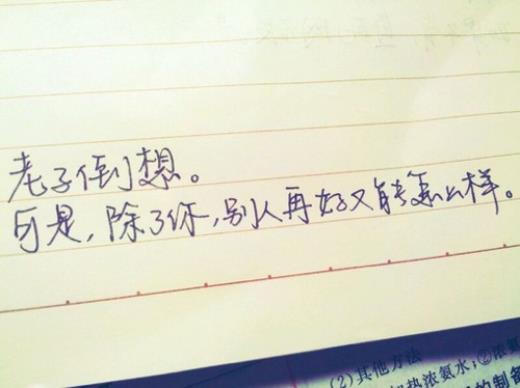 老子倒想。
可是，除了你，别人再好又能怎么样。
(2)其他方法
热浓氨水；②浓氨
的制备